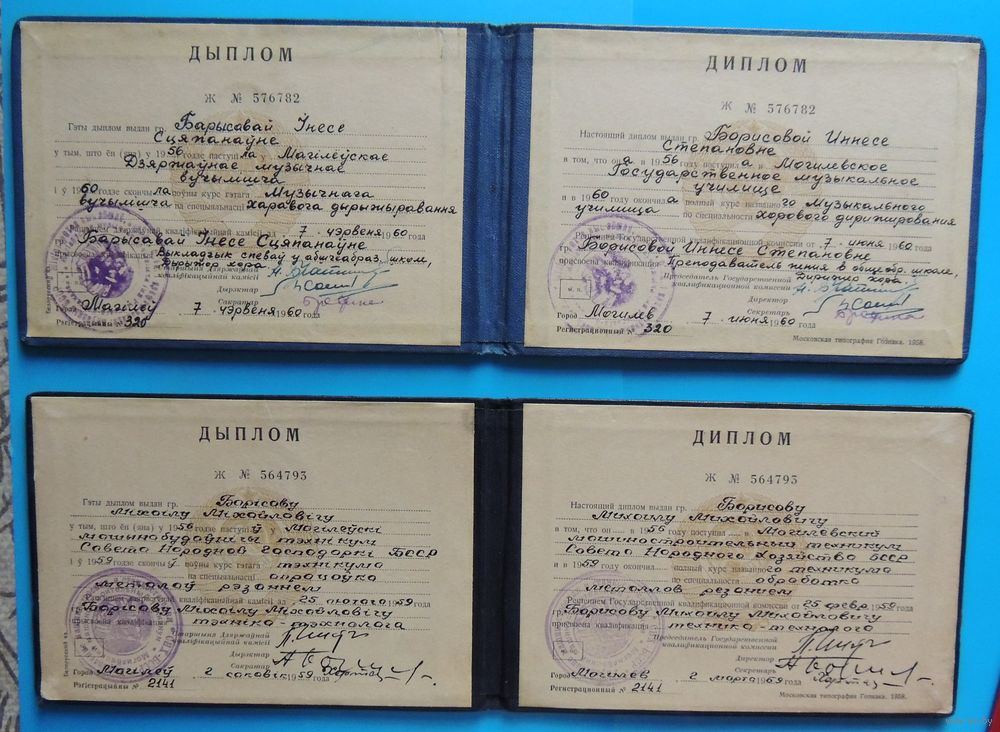 ДЫПЛОМ
Ж № 576782
Гэты дыплом выдан гр. Барысавай Інесе
Сцяпанаўне
у тым, што ён (яна) у 1956 годзе паступіла ў Магілеўскае
Дзяржаўнае музычнае
вучылішча
і ў 1960 годзе скончыла поўны курс гэтага Музычнага
вучылішча па спецыяльнасці харавога дырыжыравання
Рашэннем Дзяржаўнай кваліфікацыйнай камісіі ад 7 чэрвеня 1960 года
Барысавай Інесе Сцяпанаўне
прысвоена кваліфікацыя Выкладчык спеваў у абшчэабраз. школе,
Дырыжор хора
Старшыня Дзяржаўнай
кваліфікацыйнай камісіі
Дырэктар
Сакратар
Горад Магілеў 7 чэрвеня 1960 года
Рэгістрацыйны № 320
ДИПЛОМ
Ж № 576782
Настоящий диплом выдан гр. Борисовой Иннесе
Степановне
в том, что она в 1956 году поступила в Могилевское
Государственное музыкальное
училище
и в 1960 окончила полный курс названного Музыкального
училища по специальности хорового дирижирования
Решением Государственной квалификационной комиссии от 7 июня 1960 года
Борисовой Иннесе Степановне
присвоена квалификация Преподаватель пения в общеобр. школе,
Дирижер хора.
Председатель Государственной
квалификационной комиссии
Директор
Секретарь
м. п.
Город Могилев 7 июня 1960 года
Регистрационный № 320
Московская типография Гознака. 1958.
ДЫПЛОМ
Ж № 564793
Гэты дыплом выдан гр. Борісову
Міхаілу Міхайловічу
у тым, што ён (яна) у 1956 годзе паступіў Магілеўскі
машинобудоўнічы тэхнікум
Совета Народной Господаркі БССР
і ў 1959 годзе скончыў поўны курс гэтага тэхнікума
па спецыяльнасці апрацоўка
металаў рэзаннем
Рашэннем Дзяржаўнай кваліфікацыйнай камісіі ад 25 лютага 1959 года
Борісову Міхаілу Міхайловічу
прысвоена кваліфікацыя тэхніка-тэхнолага
Старшыня Дзяржаўнай
кваліфікацыйнай камісіі
Дырэктар
Сакратар
Горад Магілеў 2 сакавік 1959 года
Рэгістрацыйны № 2141
ДИПЛОМ
Ж № 564793
Настоящий диплом выдан гр. Борисову
Михаилу Михайловичу
в том, что он в 1956 году поступил в Могилевский
машиностроительный техникум
Совета Народного Хозяйства БССР
и в 1959 окончил полный курс названного техникума
по специальности обработка
металлов резанием
Решением Государственной квалификационной комиссии от 25 февр. 1959 года
Борисову Михаилу Михайловичу
присвоена квалификация технико-технолога
Председатель Государственной
квалификационной комиссии
Директор
Секретарь
Город Могилев 2 марта 1959 года
Регистрационный № 2141
Московская типография Гознака. 1958.